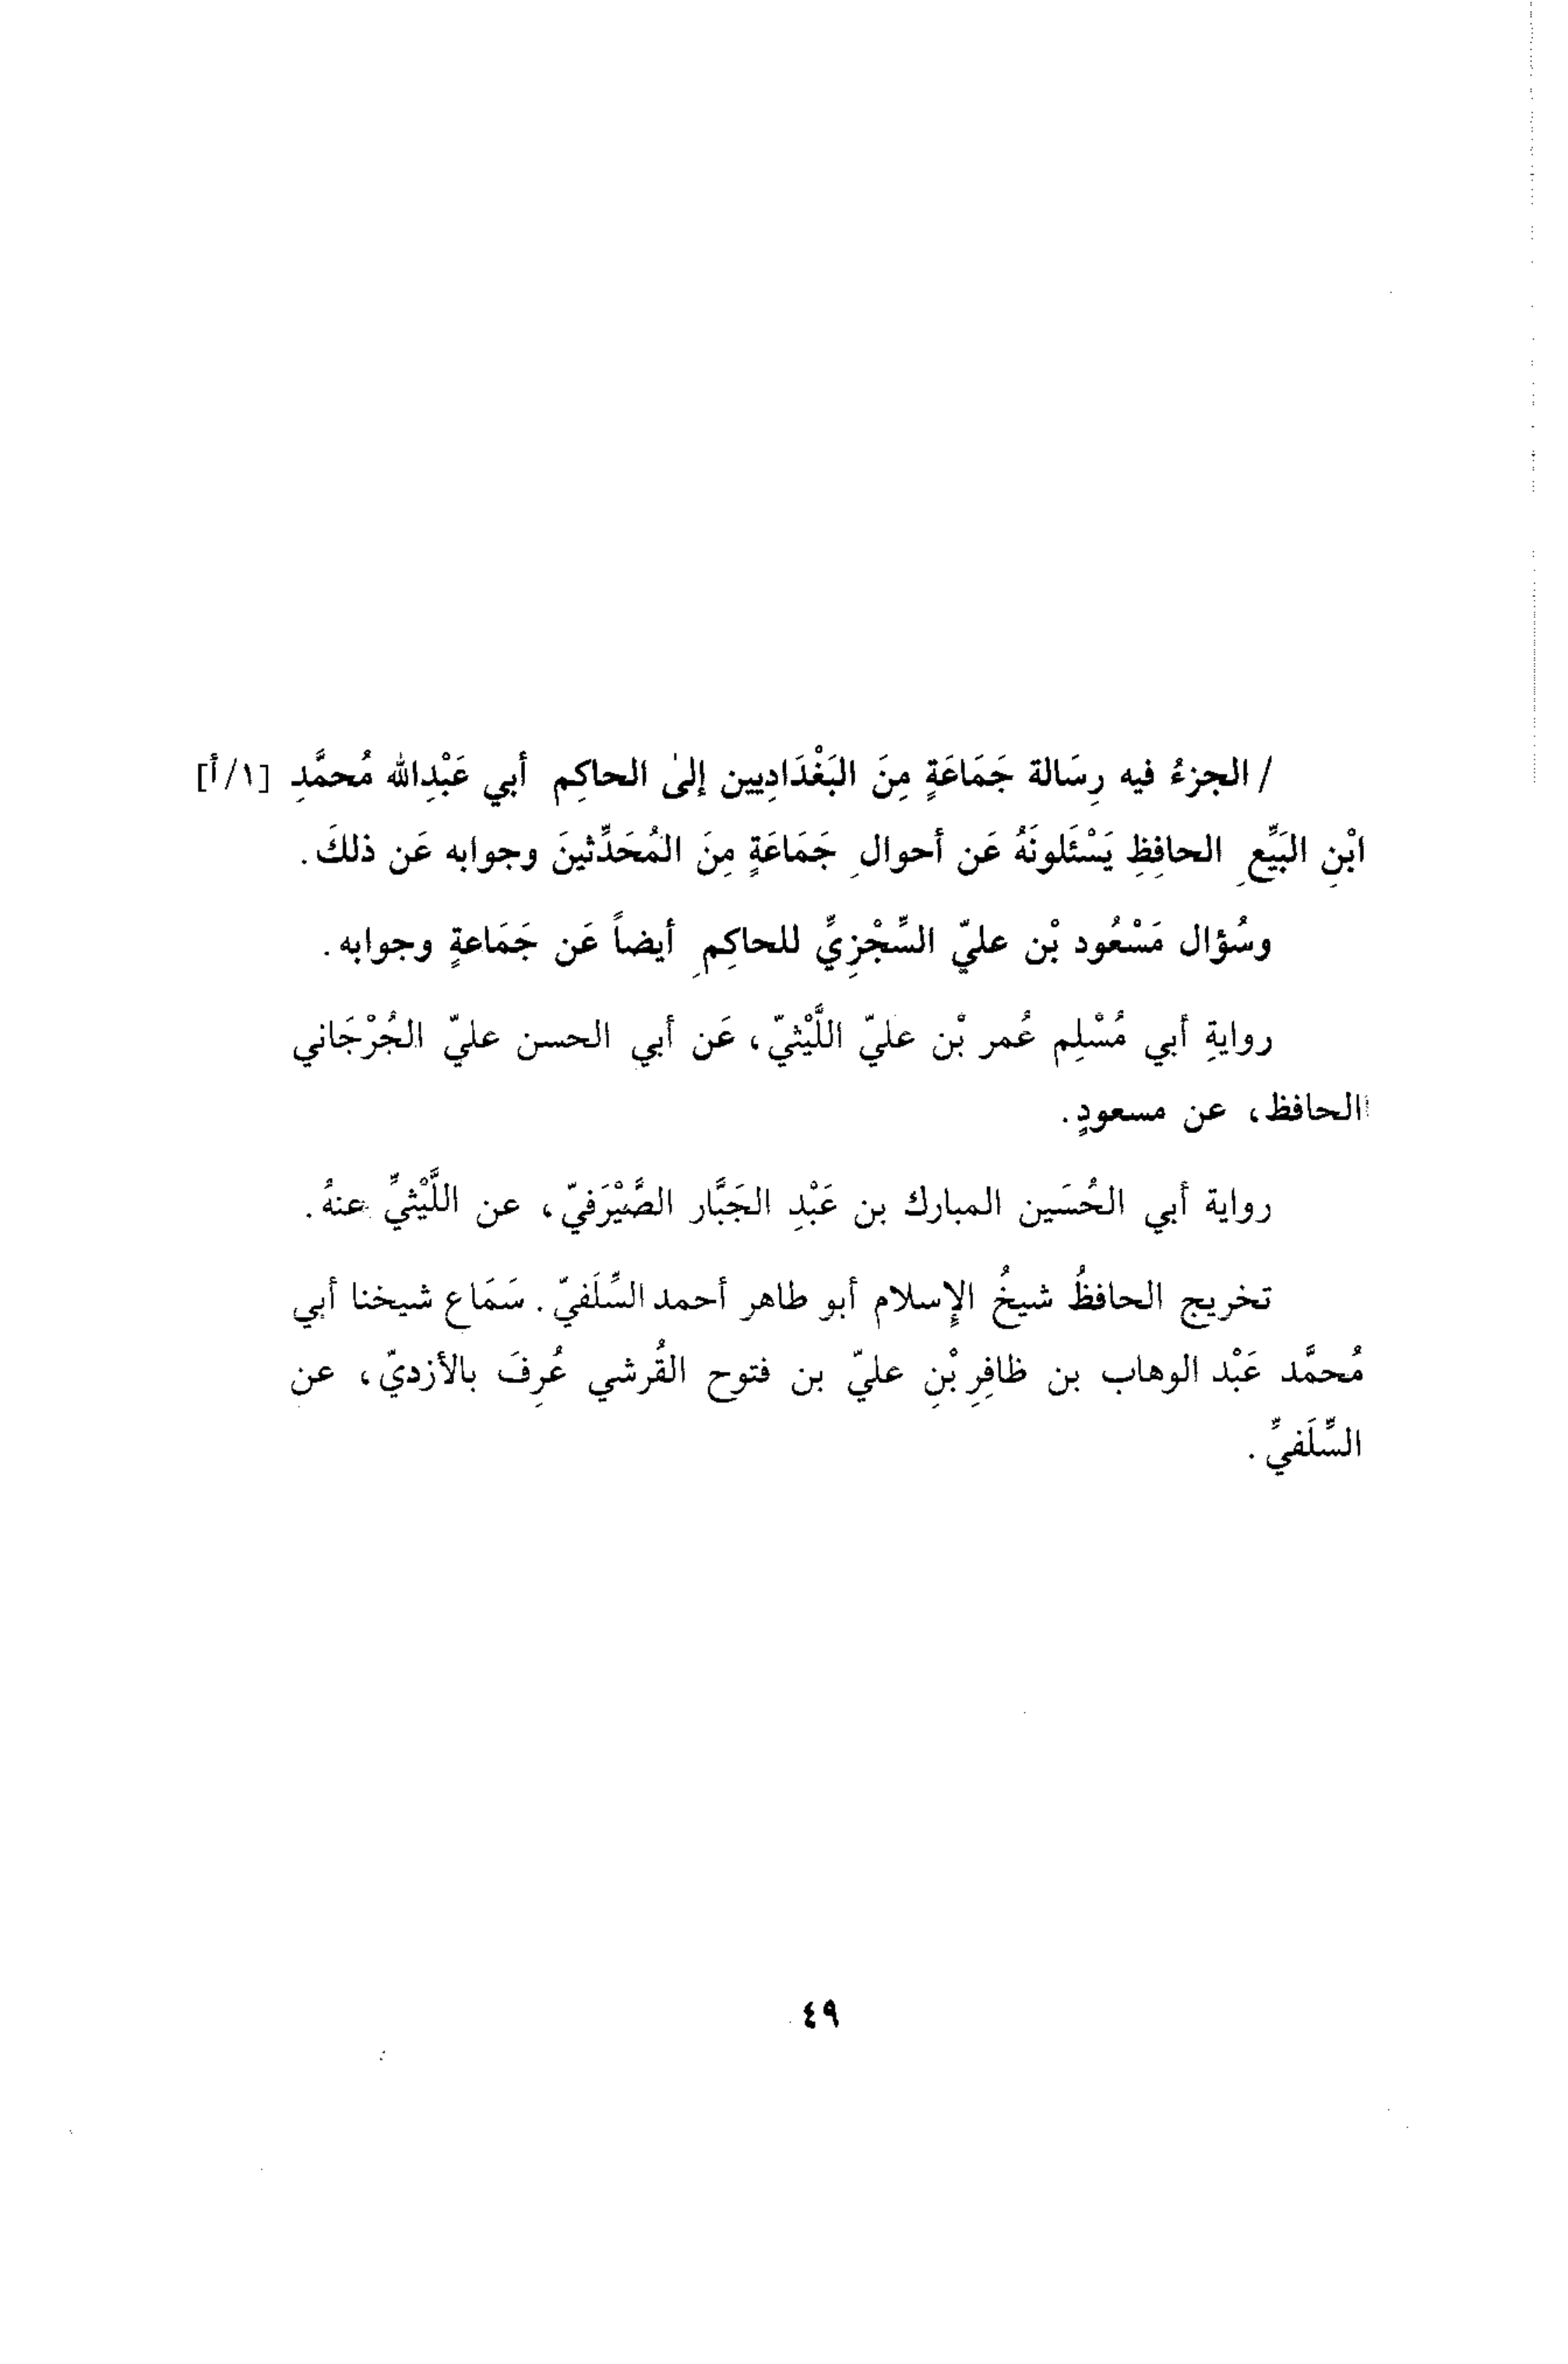 / الجزءُ فيه رِسَالة جَمَاعَةٍ مِنَ البَغْدَادِيين إلىٰ الحاكِم أبي عَبْدِالله مُحمَّدِ [١/أ]
ابْنِ البَيِّعِ الحافِظِ يَسْئَلونَهُ عَن أحوالِ جَمَاعَةٍ مِنَ المُحَدِّثينَ وجوابه عَن ذلكَ.
وسُؤال مَسْعُود بْن عليّ السِّجْزِيِّ للحاكِمِ أيضاً عَن جَمَاعةٍ وجوابه.
روايةِ أبي مُسْلِم عُمر بْن عليّ اللَّيْثيّ، عَن أبي الحسن عليّ الجُرْجَاني
الحافظ، عن مسعودٍ.
رواية أبي الحُسَين المبارك بن عَبْدِ الجَبَّار الصَّيْرَفيّ، عن اللَّيْثيِّ عنهُ.
تخريج الحافظُ شيخُ الإسلام أبو طاهر أحمد السِّلَفيّ. سَمَاع شيخنا أبي
مُحمَّد عَبْد الوهاب بن ظافِرِ بْنِ عليّ بن فتوح القُرشي عُرِفَ بالأزديّ، عن
السِّلَفيِّ.
٤٩